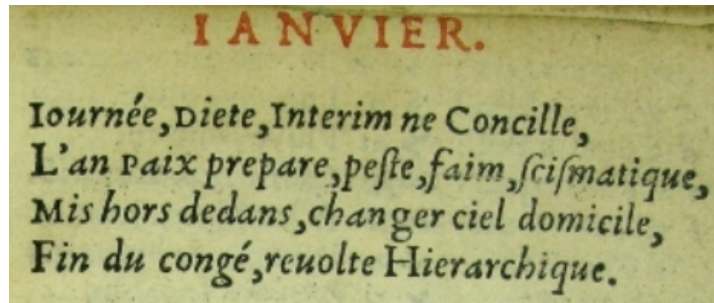 IANVIER.
Iournée, Diete, Interim ne Concille,
L'an Paix prepare, peſte, faim, ſciſmatique,
Mis hors dedans, changer ciel domicile,
Fin du congé, reuolte Hierarchique.